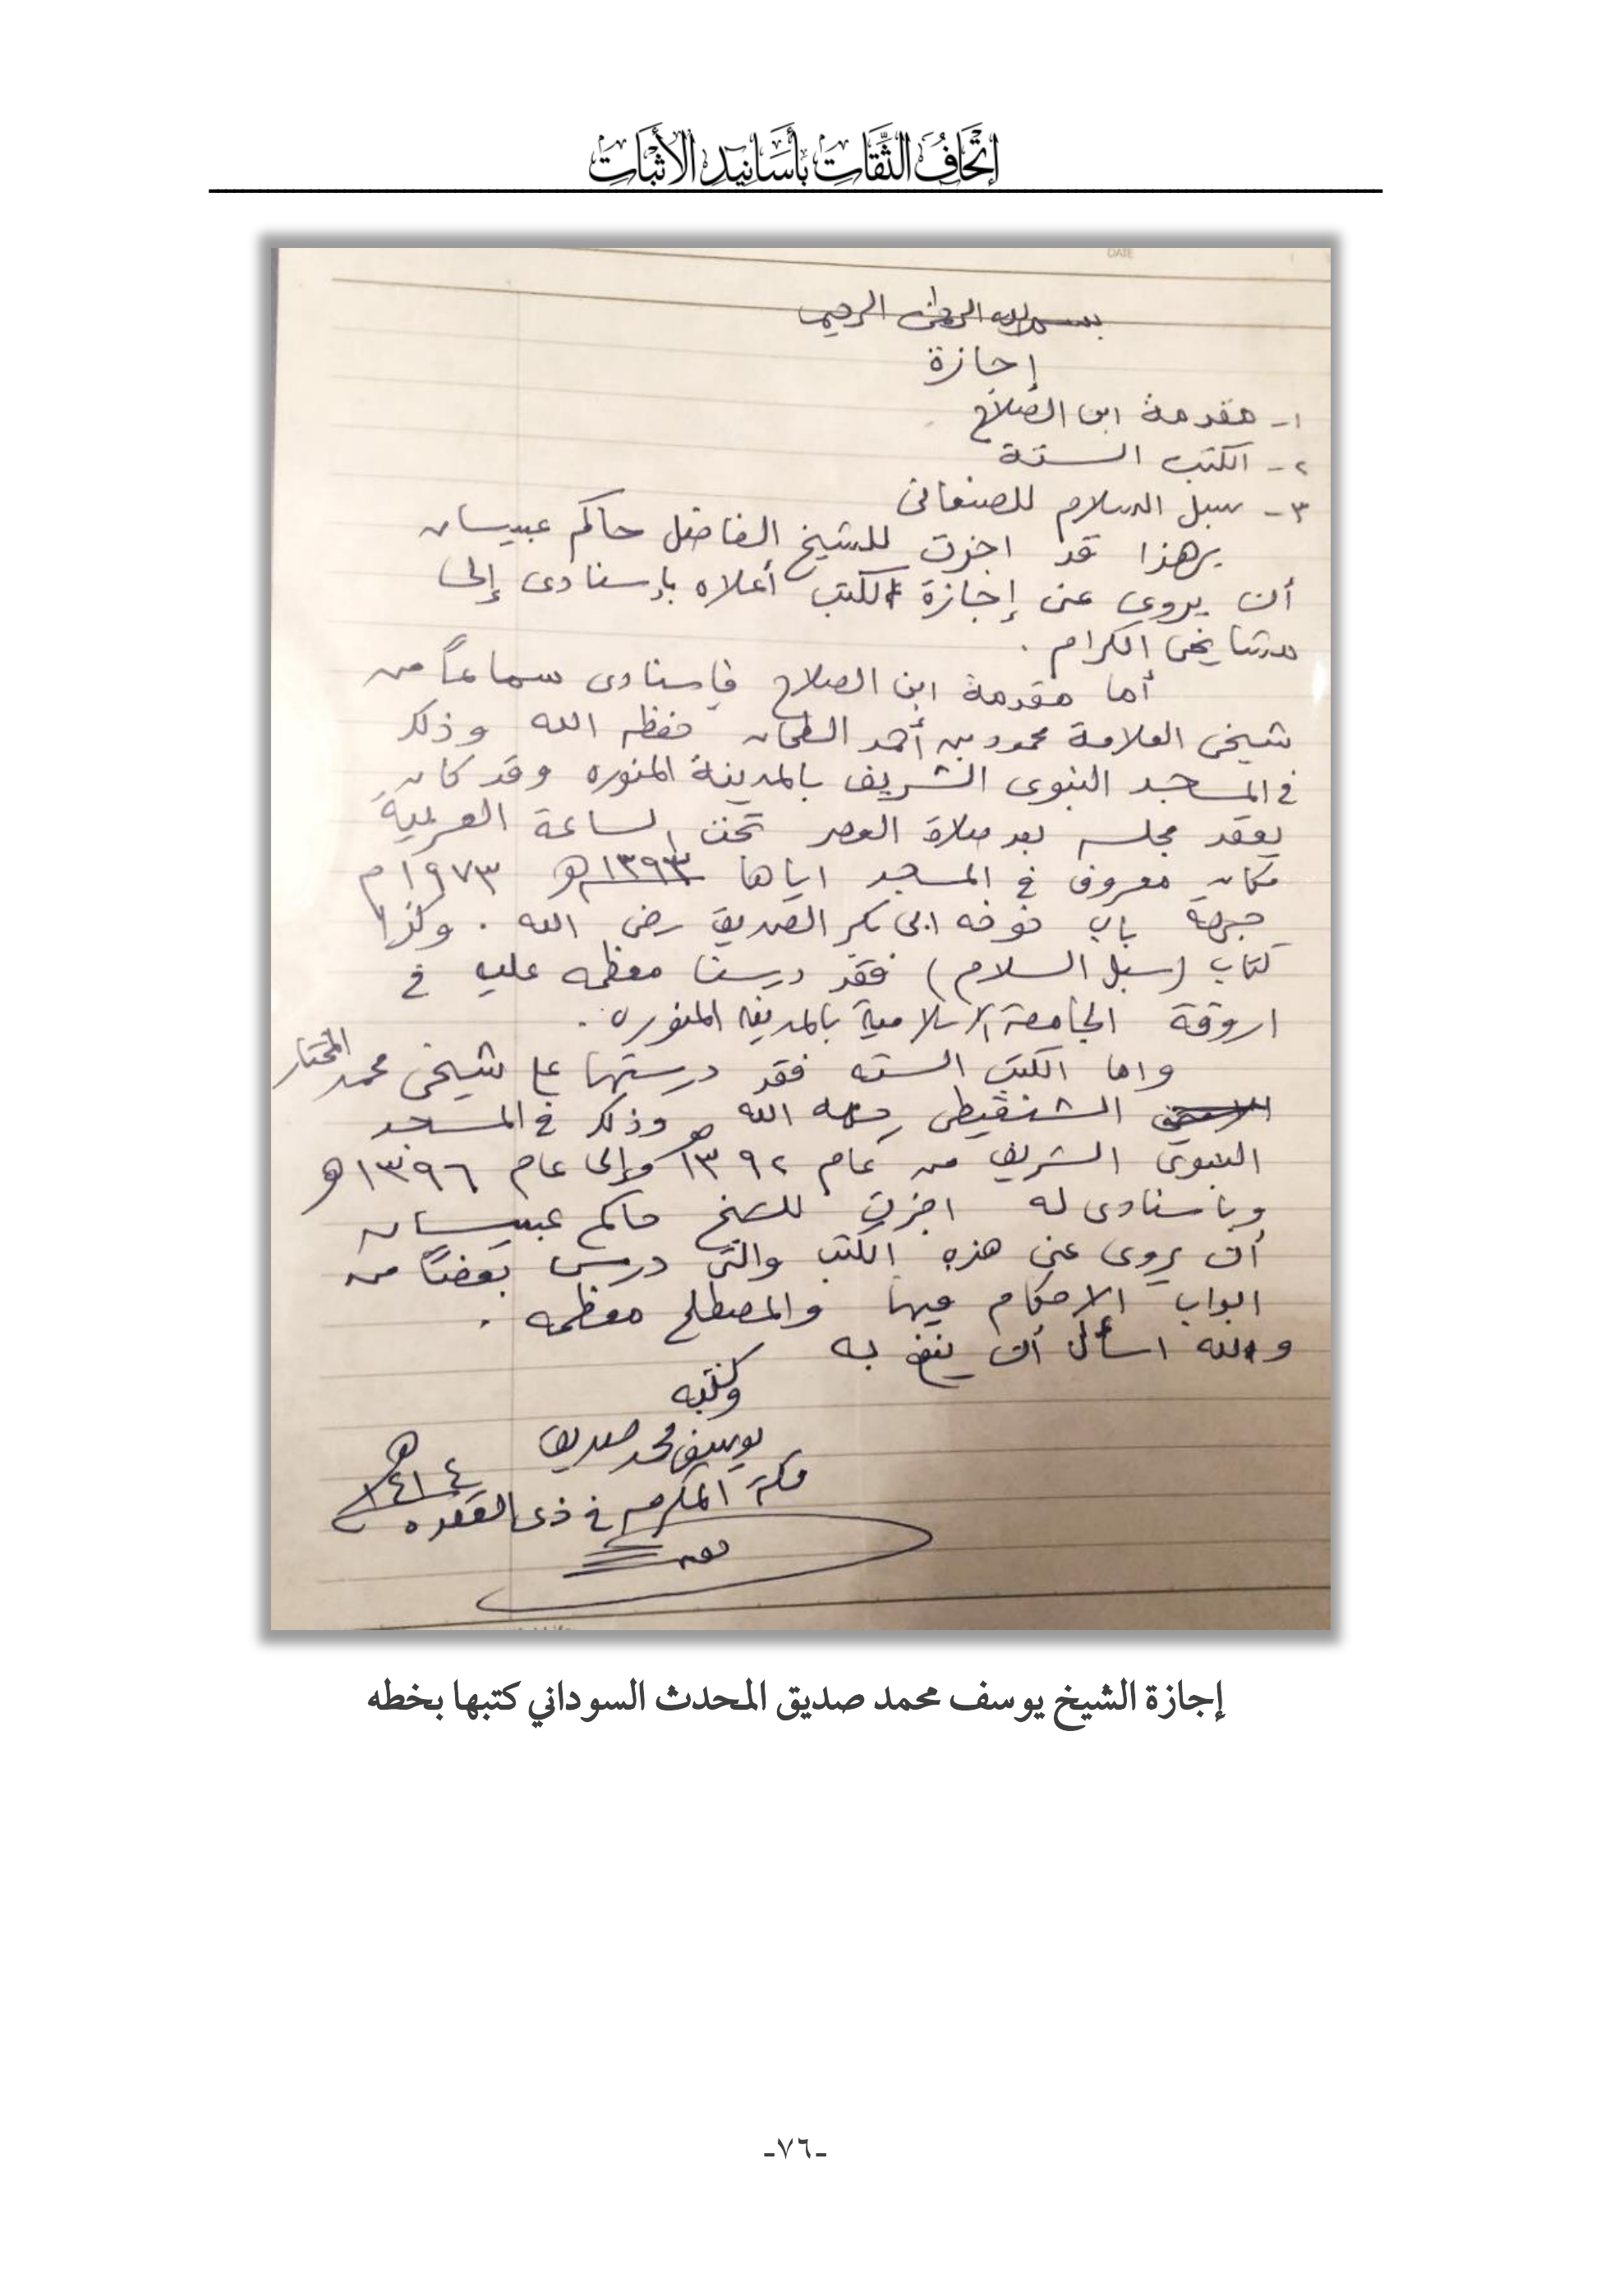 إِتْحَافُ الثِّقَاتِ بِأَسَانِيدِ الأَثْبَاتِ
DATE
بسم الله الرحمن الرحيم
إجازة
١- مقدمة ابن الصلاح
٢- الكتب الستة
٣- سبل السلام للصنعانى
بهذا قد اجزت للشيخ الفاضل حاكم عبيسان
أن يروى عنى إجازة الكتب أعلاه بإسنادى إلى
مشايخى الكرام .
أما مقدمة ابن الصلاح فإسنادى سماعاً من
شيخى العلامة محمود بن أحمد الطحان حفظه الله وذلك
فى المسجد النبوى الشريف بالمدينة المنوره وقد كان
يعقد مجلسه بعد صلاة العصر تحت الساعة العربية
مكان معروف فى المسجد اياها ١٣٩٣هـ ١٩٧٣م
جهة باب خوخه ابى بكر الصديق رضى الله . وكذا
كتاب (سبل السلام) فقد درسنا معظمه عليه فى
اروقة الجامعة الاسلامية بالمدينه المنوره .
واما الكتب السته فقد درستها على شيخى محمد المختار
الشنقيطى رحمه الله وذلك فى المسجد
النبوى الشريف من عام ١٣٩٢هـ وإلى عام ١٣٩٦هـ
وبإسنادى له اجزت للشيخ حاكم عبيسان
أن يروى عنى هذه الكتب والتى درس بعضاً من
ابواب الاحكام فيها والمصطلح معظمه .
والله اسأل أن ينفع به
وكتبه
يوسف محمد صديق
مكة المكرمه فى ذى القعده ١٤١٤هـ
إجازة الشيخ يوسف محمد صديق المحدث السوداني كتبها بخطه
-٧٦-